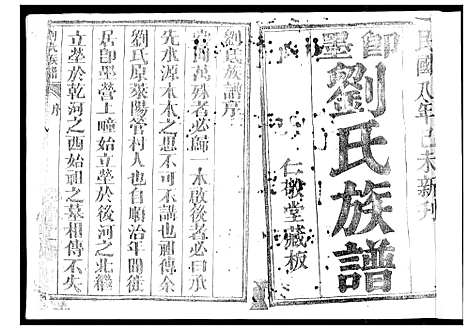 民國八年己未新刊
即墨
劉氏族譜
仁敬堂藏板
劉氏族譜序
萬殊者必歸一本啟後者必曰承
先水源木本之思不可不講也祖傳余
劉氏原萊陽管村人也自順治年間徙
居即墨營上疃始立塋於後河之北繼
立塋於乾河之西始祖之墓相傳不失
劉氏族譜
序